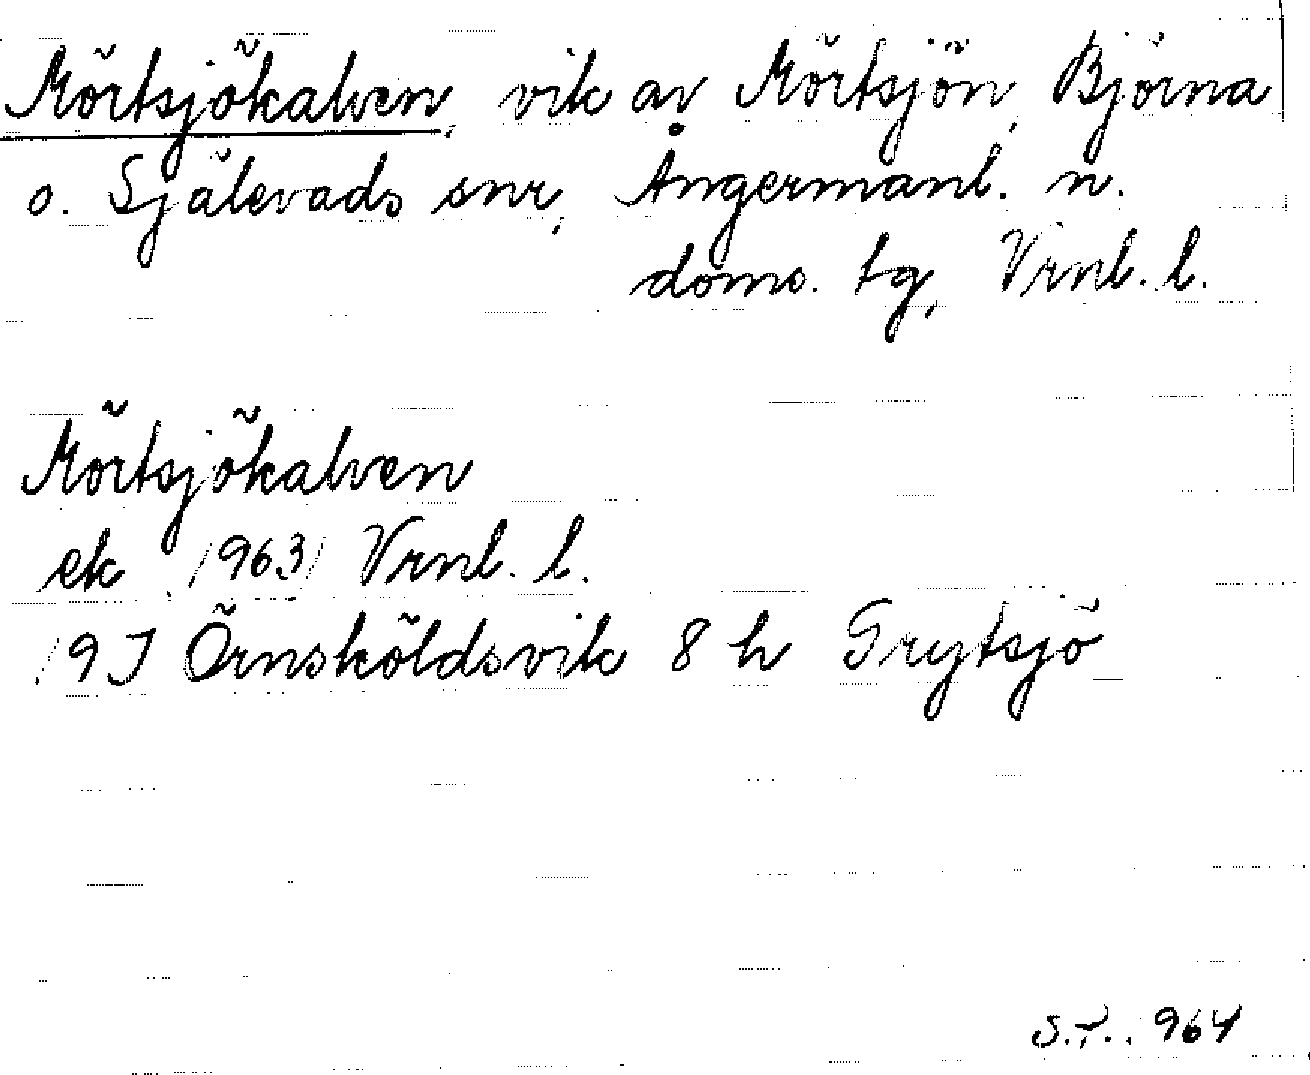 Mörtsjökalven, vik av Mörtsjön, Björna
o. Själevads snr, Ångermanl. n.
doms. tg, Vrnl. l.
Mörtsjökalven
ek 1963 Vrnl. l.
19J Örnsköldsvik 8 h Grytsjö
S.T. 1964